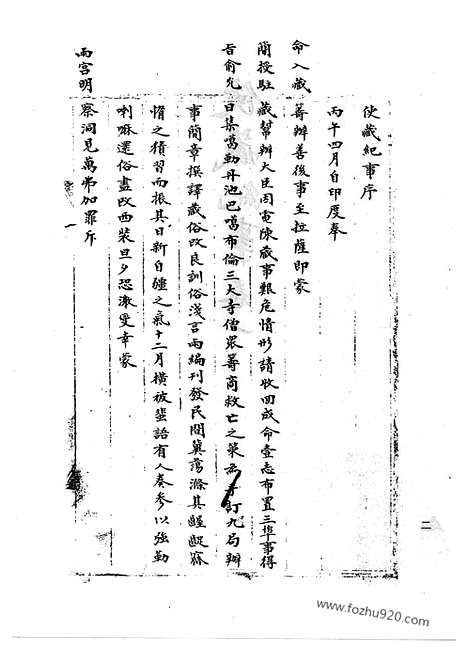 使藏紀事序
丙午四月自印度奉
命入藏籌辦善後事至拉薩即蒙
簡授駐藏幫辦大臣因電陳藏事艱危情形請收回成命壹志布置三埠事得
旨俞允日集噶勒丹池巴噶布倫三大寺僧眾籌商救亡之策手訂九局辦
事簡章撰譯藏俗改良訓俗淺言兩編刊發民間冀蕩滌其齷齪寐
惰之積習而振其日新自彊之氣十二月橫被蜚語有人奏參以強勤
喇嘛還俗盡改西裝旦夕恐激變幸蒙
兩宮明察洞見萬弗加罪斥
一
二
www.fozhu920.com